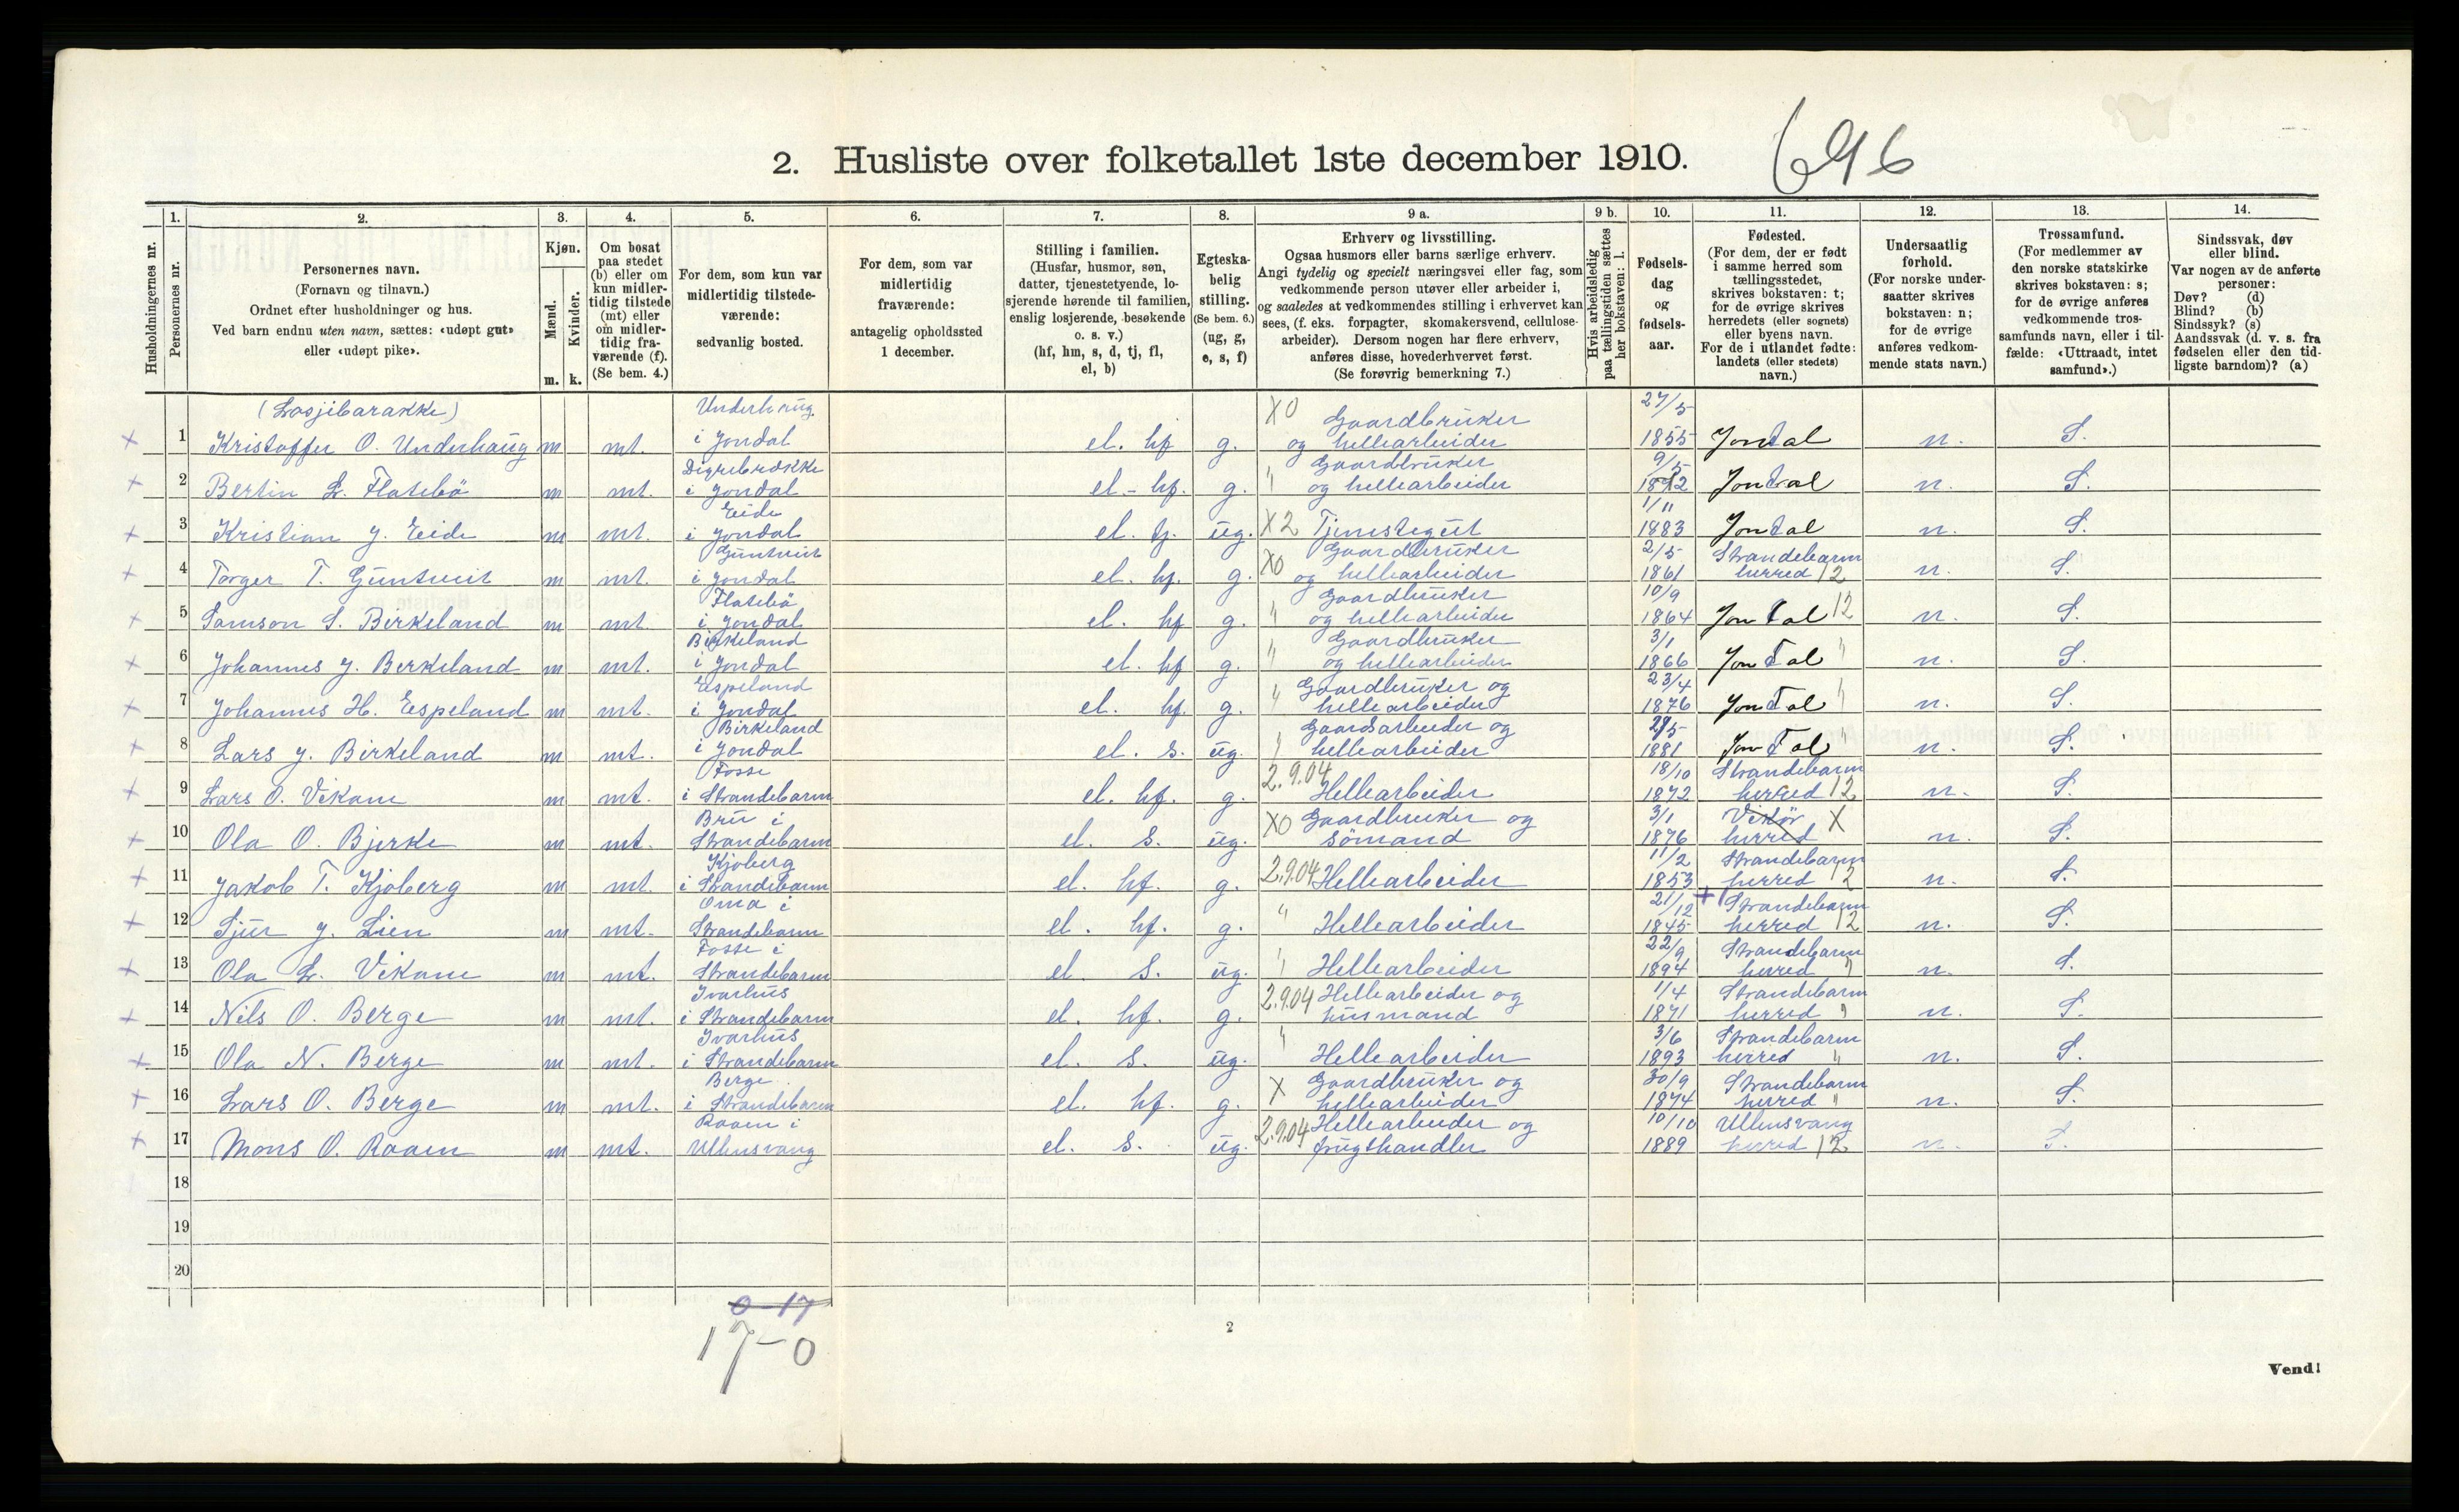 2. Husliste over folketallet 1ste december 1910. 696
Husholdningernes nr.
1. Personernes nr.
2. Personernes navn. (Fornavn og tilnavn.) Ordnet efter husholdninger og hus. Ved barn endnu uten navn, sættes: «udøpt gut» eller «udøpt pike».
3. Kjøn. Mænd. m. Kvinder. k.
4. Om bosat paa stedet (b) eller om kun midlertidig tilstede (mt) eller om midlertidig fraværende (f). (Se bem. 4.)
5. For dem, som kun var midlertidig tilstedeværende: sedvanlig bosted.
6. For dem, som var midlertidig fraværende: antagelig opholdssted 1 december.
7. Stilling i familien. (Husfar, husmor, søn, datter, tjenestetyende, losjerende hørende til familien, enslig losjerende, besøkende o. s. v.) (hf, hm, s, d, tj, fl, el, b)
8. Egteskabelig stilling. (Se bem. 6.) (ug, g, e, s, f)
9 a. Erhverv og livsstilling. Ogsaa husmors eller barns særlige erhverv. Angi tydelig og specielt næringsvei eller fag, som vedkommende person utøver eller arbeider i, og saaledes at vedkommendes stilling i erhvervet kan sees, (f. eks. forpagter, skomakersvend, cellulosearbeider). Dersom nogen har flere erhverv, anføres disse, hovederhvervet først. (Se forøvrig bemerkning 7.)
9 b. Hvis arbeidsledig paa tællingstiden sættes her bokstaven: l.
10. Fødselsdag og fødselsaar.
11. Fødested. (For dem, der er født i samme herred som tællingsstedet, skrives bokstaven: t; for de øvrige skrives herredets (eller sognets) eller byens navn. For de i utlandet fødte: landets (eller stedets) navn.)
12. Undersaatlig forhold. (For norske undersaatter skrives bokstaven: n; for de øvrige anføres vedkommende stats navn.)
13. Trossamfund. (For medlemmer av den norske statskirke skrives bokstaven: s; for de øvrige anføres vedkommende trossamfunds navn, eller i tilfælde: «Uttraadt, intet samfund».)
14. Sindssvak, døv eller blind. Var nogen av de anførte personer: Døv? (d) Blind? (b) Sindssyk? (s) Aandssvak (d. v. s. fra fødselen eller den tidligste barndom)? (a)
(Losjibarakke)
x 1 Kristoffer O. Underhaug m mt. Underhaug i Jondal el. hf g. X0 Gaardbruker og hellearbeider 27/5 1855 Jondal n. S.
x 2 Bertin L. Flatebö m mt. i Jondal el. hf. g. " Gaardbruker og hellearbeider 9/5 Jondal n. S.
x 3 Kristian J. Eide m mt. Eide i Jondal el. tj. ug. X2 Tjenestegut 1/11 1883 Jondal n. S.
x 4 Torger T. Guntveit m mt. Guntveit i Jondal el. hf. g. X0 Gaardbruker og hellearbeider 2/5 1861 Strandebarm herred 12 n. S.
x 5 Samson S. Birkeland m mt. Flatebö i Jondal el. hf g. " Gaardbruker og hellearbeider 10/9 1864 Jondal 12 n. S.
x 6 Johannes J. Berkeland m mt. Birkeland i Jondal el. hf g. " Gaardbruker og hellearbeider 3/1 1866 Jondal " n. S.
x 7 Johannes H. Espeland m mt. Espeland i Jondal el. hf. g. " Gaardbruker og hellearbeider 23/4 1876 Jondal " n. S.
x 8 Lars J. Birkeland m mt. Birkeland i Jondal el. s. ug. " Gaardsarbeider og hellearbeider 1881 Jondal " n. S.
x 9 Lars O. Vikane m mt. Fosse i Strandebarm el. hf. g. 2.9.04 Hellearbeider 18/10 1872 Strandebarm herred 12 n. S.
x 10 Ola O. Bjerke m mt. Bru i Strandebarm el. s. ug. X0 Gaardbruker og sömand 3/1 1876 Vikör herred X n. S.
x 11 Jakob T. Kjoberg m mt. Kjoberg i Strandebarm el. hf. g. 2.9.04 Hellearbeider 11/2 1853 Strandebarm herred 12 n. S.
x 12 Sjur J. Lien m mt. Oma i Strandebarm el. hf. g. " Hellearbeider 21/12 1845 + Strandebarm herred 12 n. S.
x 13 Ola L. Vikane m mt. Fosse i Strandebarm el. s. ug. " Hellearbeider 22/9 1894 Strandebarm herred " n. S.
x 14 Nils O. Berge m mt. Ivarhus i Strandebarm el. hf. g. 2.9.04 Hellearbeider og husmand 1/4 1871 Strandebarm herred " n. S.
x 15 Ola N. Berge m mt. Ivarhus i Strandebarm el. s. ug. " Hellearbeider 3/6 1893 Strandebarm herred " n. S.
x 16 Lars O. Berge m mt. Berge i Strandebarm el. hf. g. X Gaardbruker og hellearbeider 30/9 1874 Strandebarm herred " n. S.
x 17 Mons O. Raaen m mt. Raaen i Ullensvang el. s. ug. 2.9.04 Hellearbeider og frugthandler 10/10 1889 Ullensvang herred 12 n. S.
18
19
20
0-17
17-0
2
Vend!